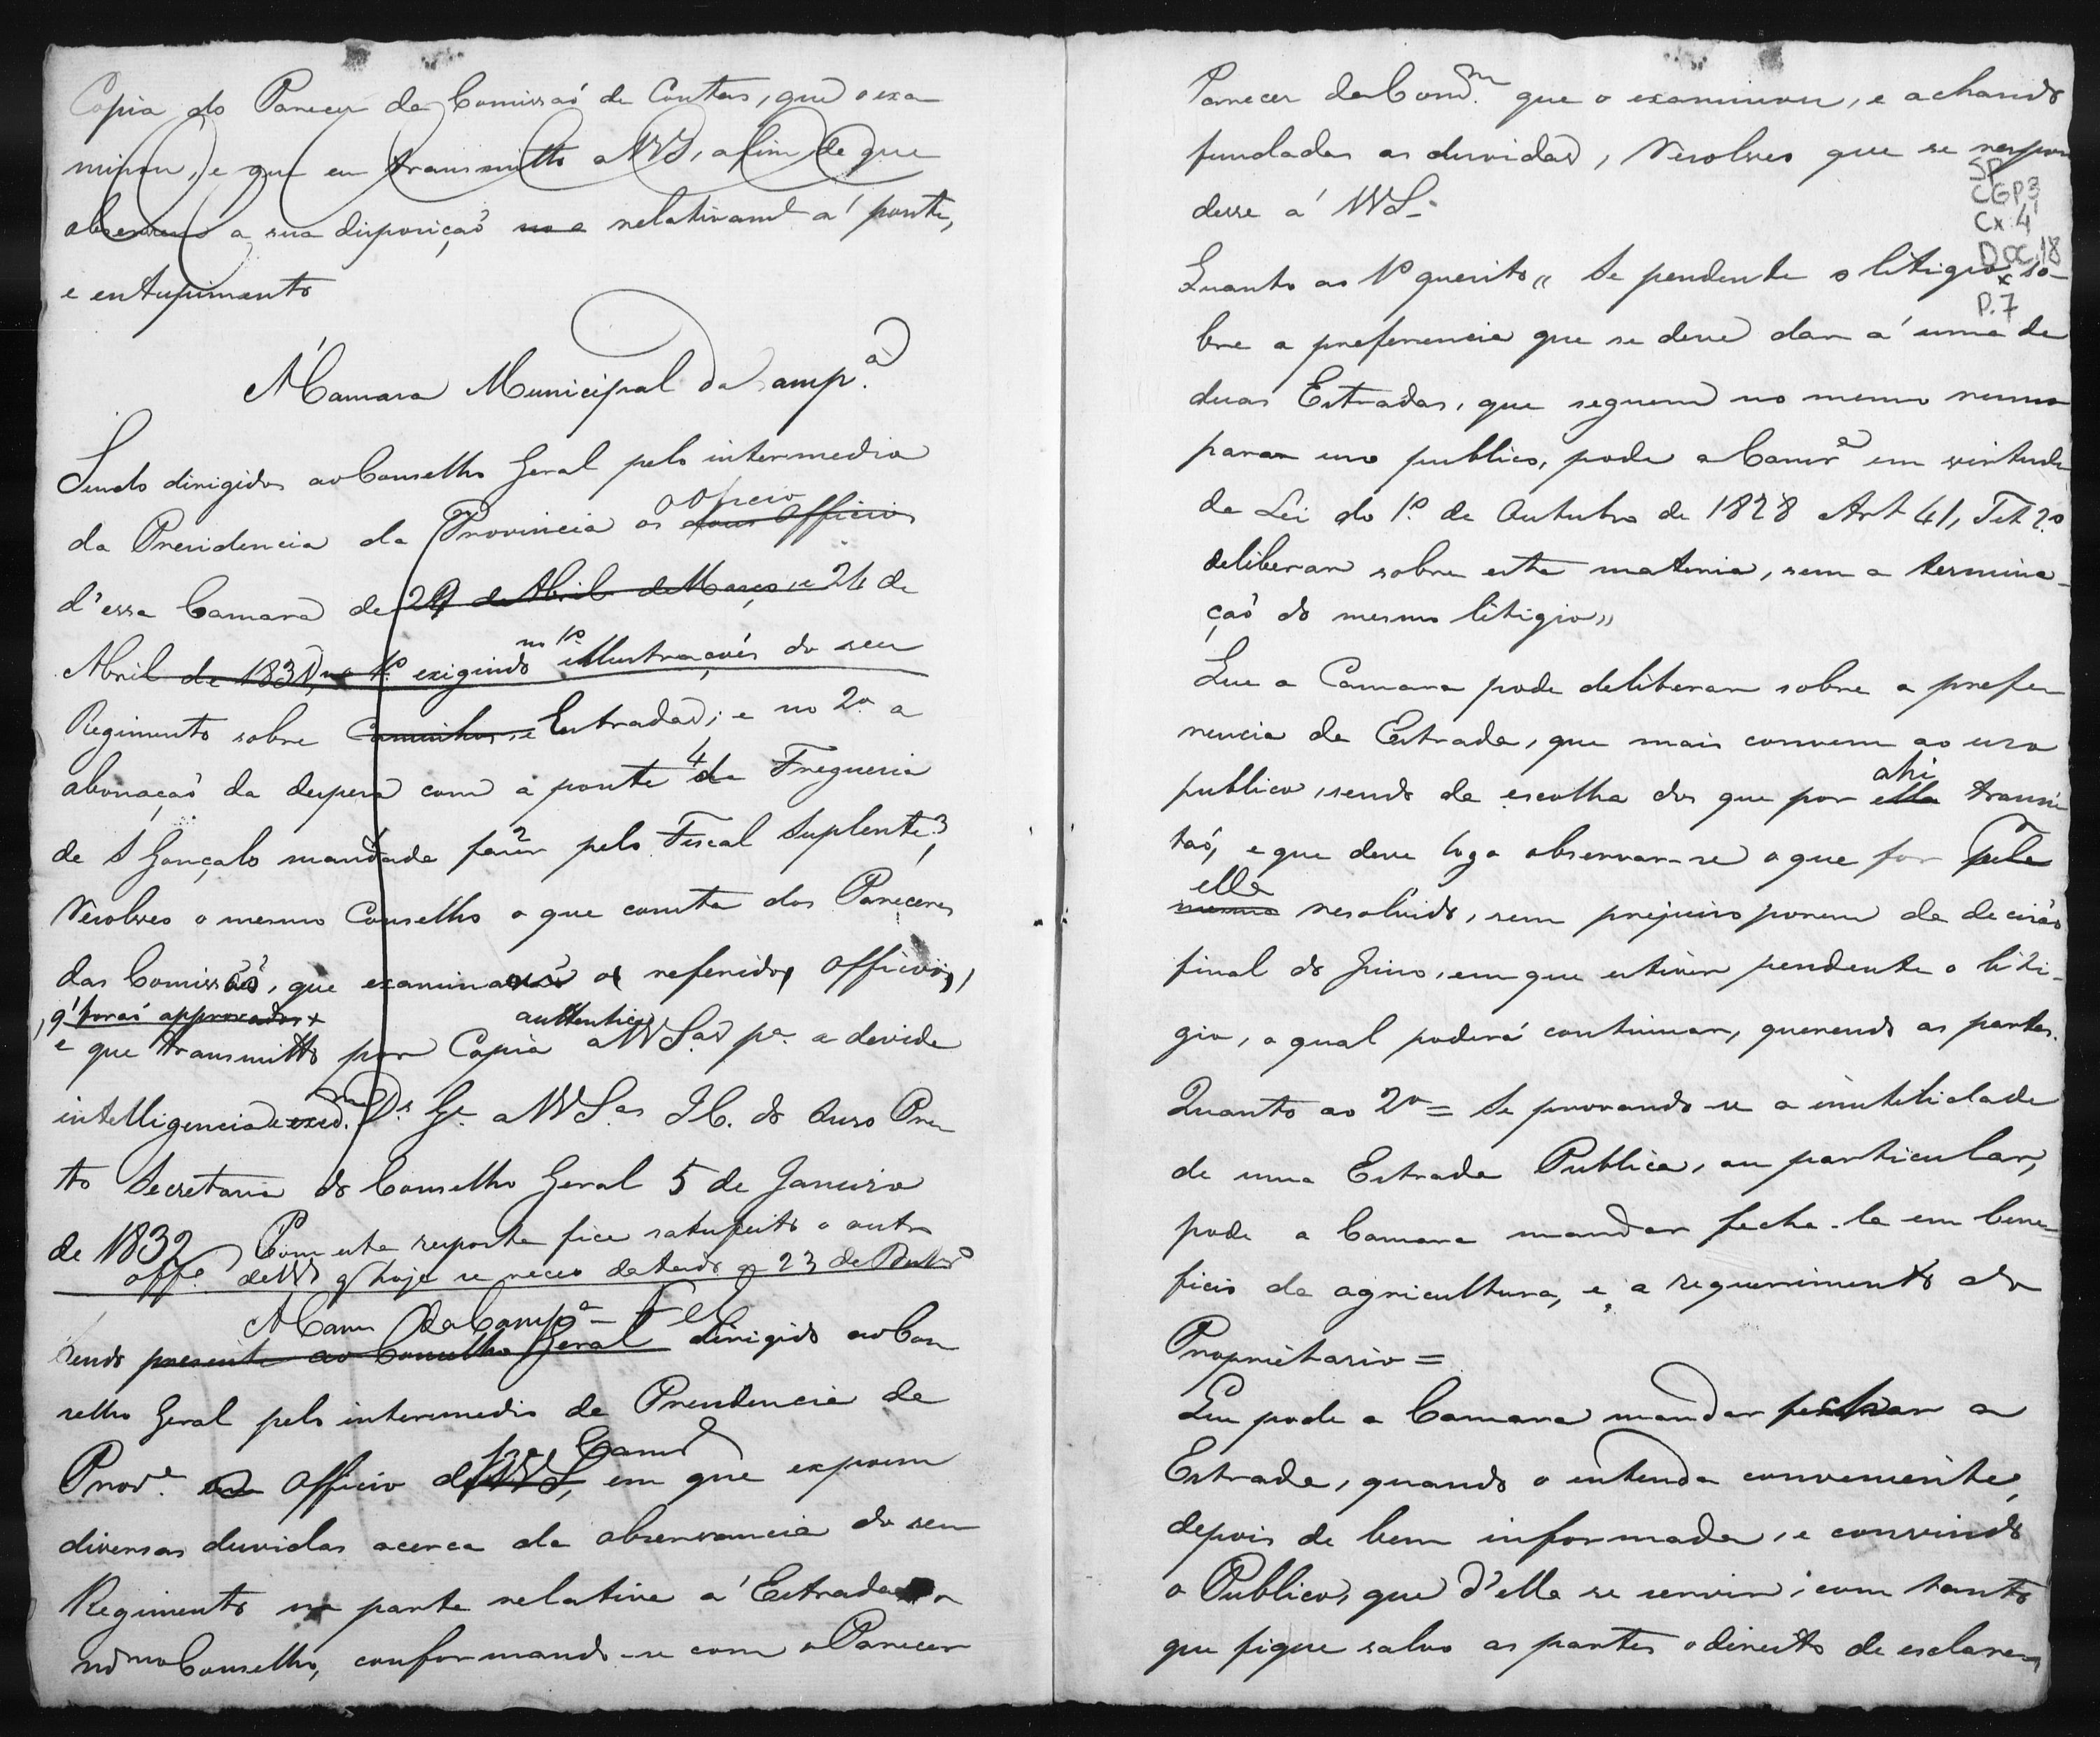 Copia do Parecer da Comissaõ de Contas, que o exa
minou, e que eu transmitto a VVSS, afim de que
observem a sua disposiçaõ no e relativamᵉ á ponte,
e entupimento
Á Camara Municipal da Campª
Sendo dirigidos ao Conselho Geral pelo intermedio
officio
da Presidencia da Provincia os dous Officios
d'essa Camara de 29 de Abril de Março e 24 de
no 1º
Abril de 1831, no 1º exigindo illustraçoẽs do seu
Regimento sobre Caminhos, e Estradas; e no 2º a
abonaçaõ da despesa com a ponte 4 da Freguesia
de S Gonçalo mandada fazer 2 pelo Fiscal Suplente 3,
Resolveo o mesmo Conselho o que consta dos Pareceres
das Comissoẽs, que examinaraõ os referidos Officios,
, q' foraõ approvados +
authentica
e que transmitto por Copia a VVSas pª a devida
intelligencia e execᵐ Ds Gᵉ a VVSas I C. do Ouro Pre
to Secretaria do Conselho Geral 5 de Janeiro
de 1832 Com esta resposta fica satisfeito o outro
offº de VVS q' hoje se receo datado a 23 de Outbrº
A Camª da Campª
Sendo presente ao Conselho Geral dirigido ao Con
selho Geral pelo intermedio da Presidencia da
Camª
Provª Officio de VVSS, em que expoem
diversas duvidas acerca da observancia do seu
Regimento na parte relativa á Estradas
o mᵐᵒ Conselho, conformando-se com o Parecer
Parecer da Comᵐ que o examinou, e achando
fundadas as duvidas, Resolveo que se respon
desse á VVSS
SP
CGP3
Cx. 4
DOC. 18
P. 7
Quanto ao 1º quesito „ Se pendente o litigio so
bre a preferencia que se deve dar á uma de
duas Estradas, que seguem no mesmo rumo
para uso publico, pode a Camrª em virtude
da Lei do 1º de Outubro de 1828 Art 41, Tit 2º
deliberar sobre esta materia, sem a termina-
çaõ do mesmo litigio „
Que a Camara pode deliberar sobre a prefe
rencia da Estrada, que mais convem ao uso
ahi
publico, sendo da escolha dos que por ella transi
taõ, e que deve logo observar-se o que for pela
ella
mesma resolvido, sem prejuiso porem da decisaõ
final do Juiso, em que estiver pendente o liti-
gio, o qual poderá continuar, querendo as partes.
Quanto ao 2º = Se provando-se a inutilidade
de uma Estrada Publica, ou particular,
pode a Camara mandar fecha-la em bene-
ficio da agricultura, e, a requerimento do
Proprietario =
Que pode a Camara mandar fechar a
Estrada, quando o entenda conveniente,
depois de bem informada, e convindo
o Publico, que d'ella se servir; com tanto
que fique salvo as partes o direito de esclare-